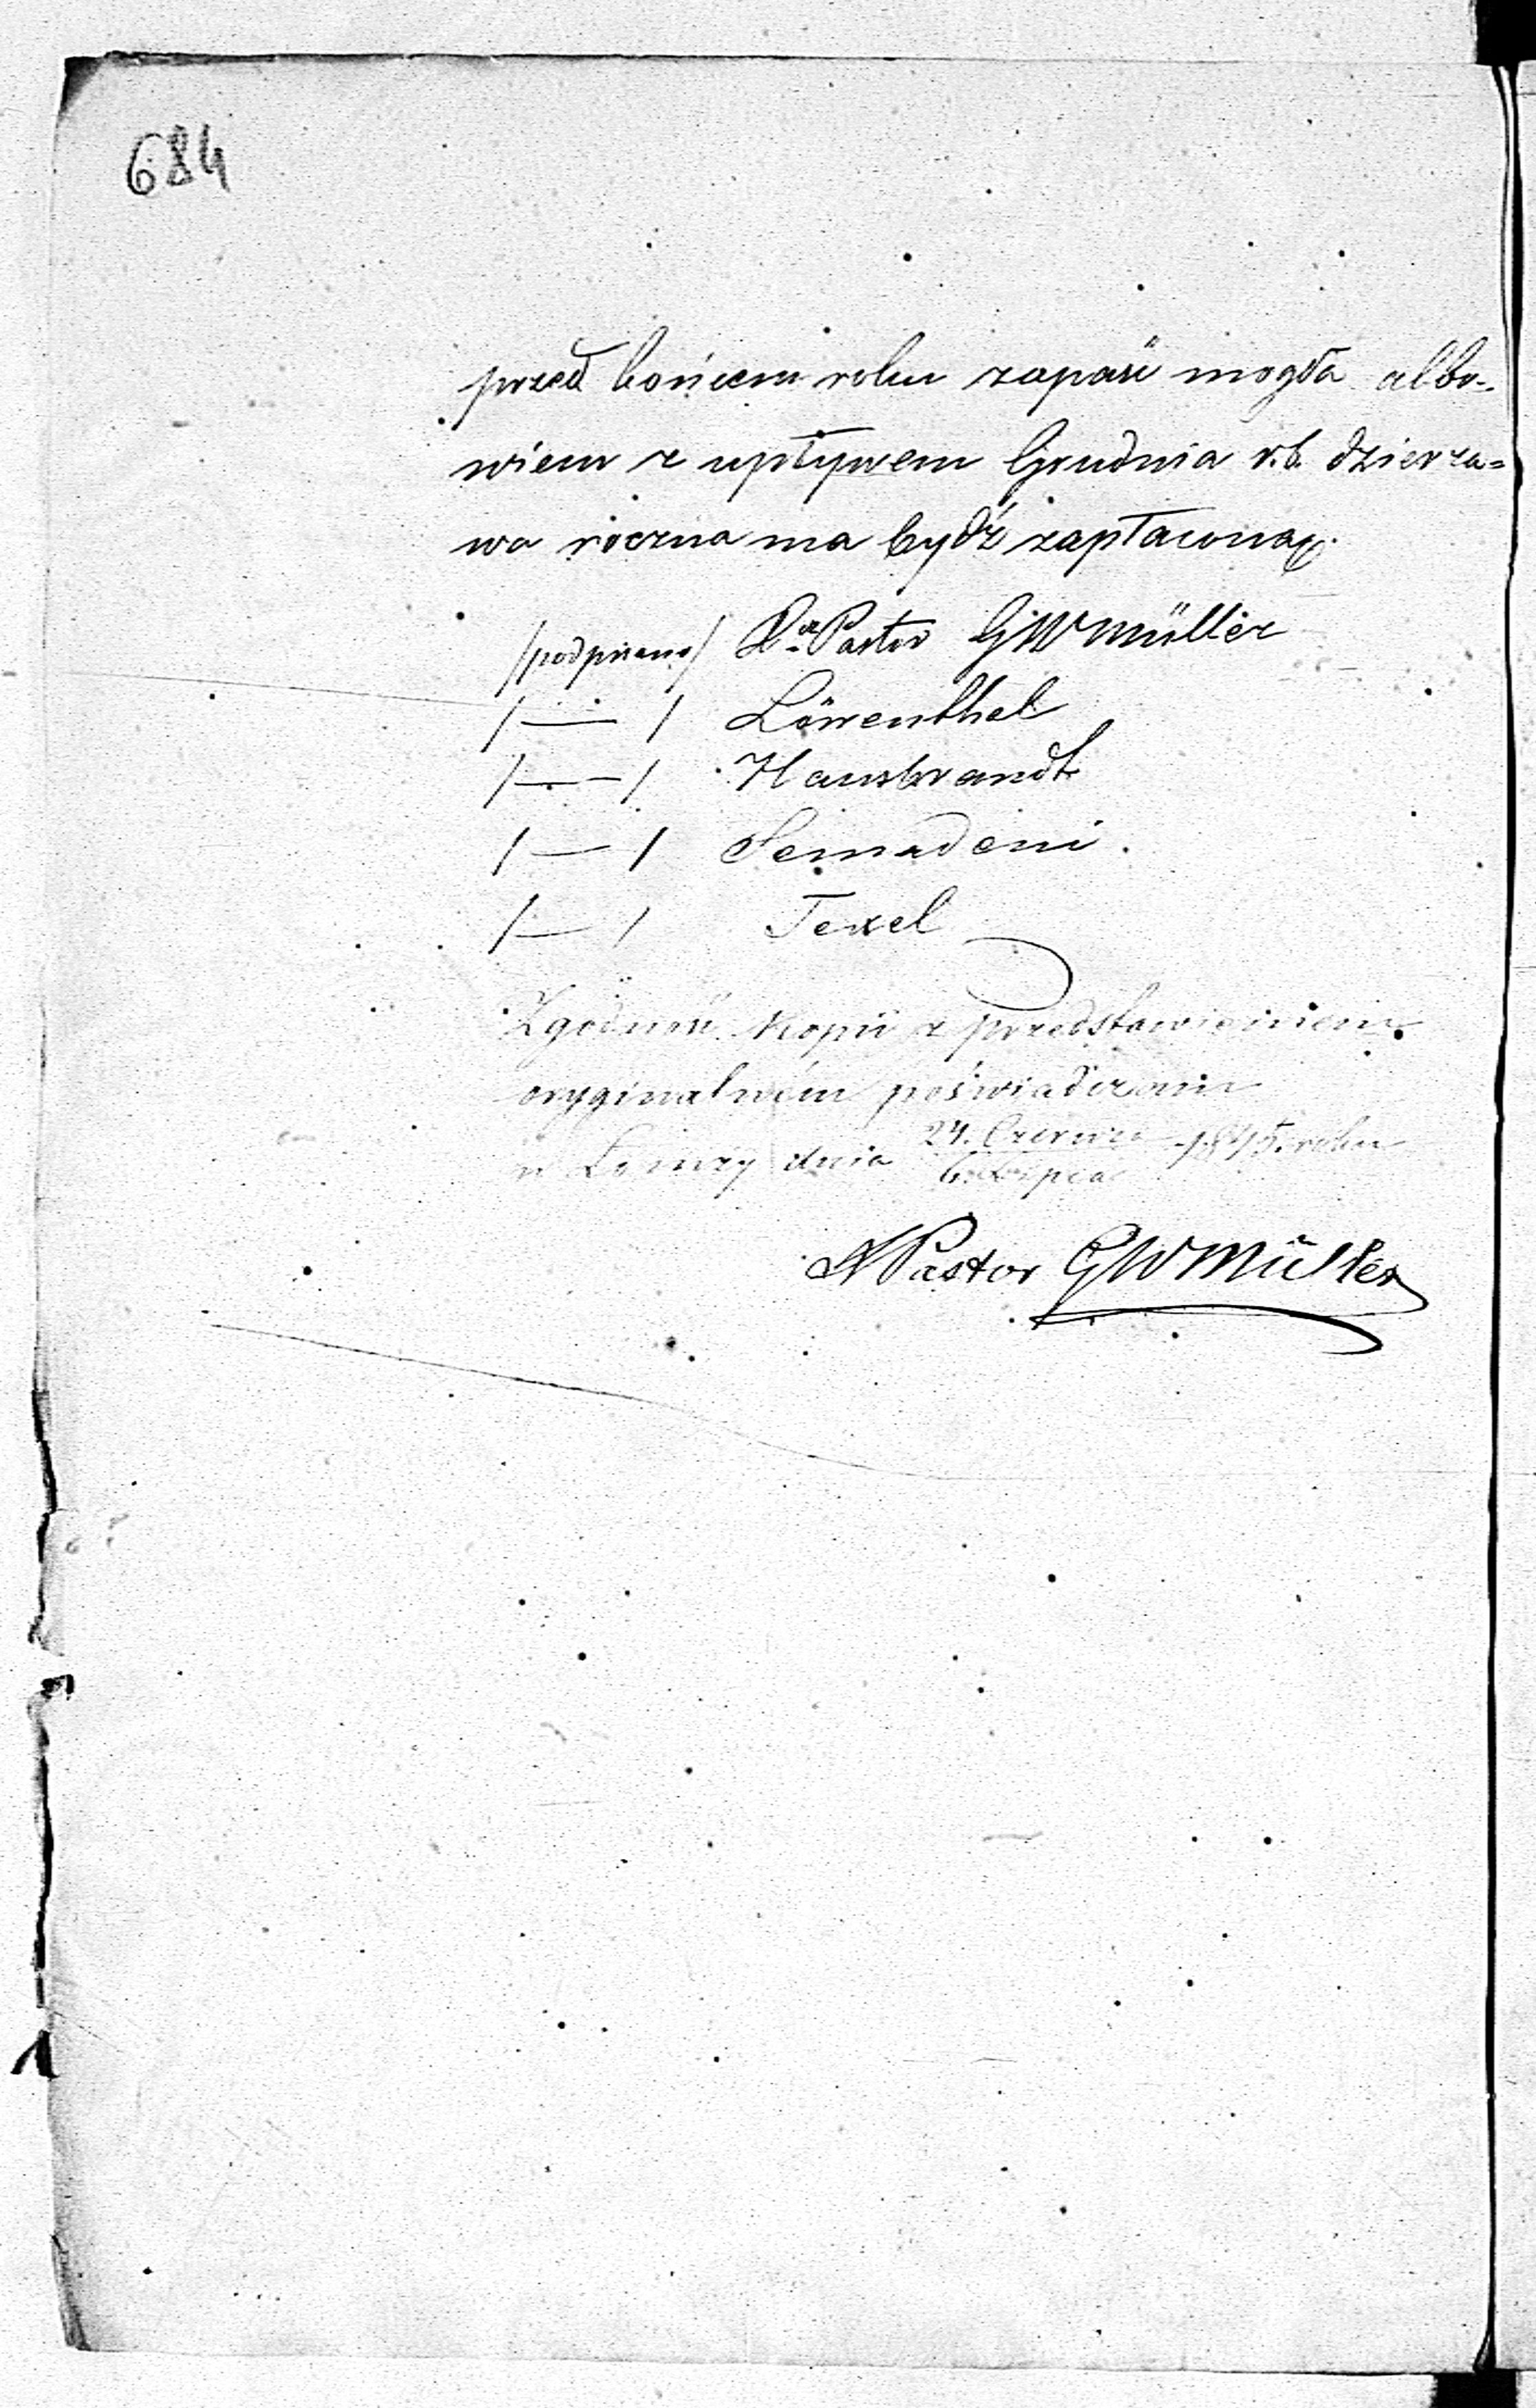 684
przed końcem roku zapaść mogła albo-
wiem z upływem Grudnia r.b. dzierza=
wa roczna ma bydź zapłacona.
/podpisano/ Pastor GWMüller
/—/ Löwenthal
/—/ Hausbrandt
/—/ Semadeni.
/—/ Texel
Zgodność Kopii z przedstawieniem
oryginalném poświadczam
w Łomży dnia 24. Czerwca 1845. roku
6. Lipca
Pastor GWMüller